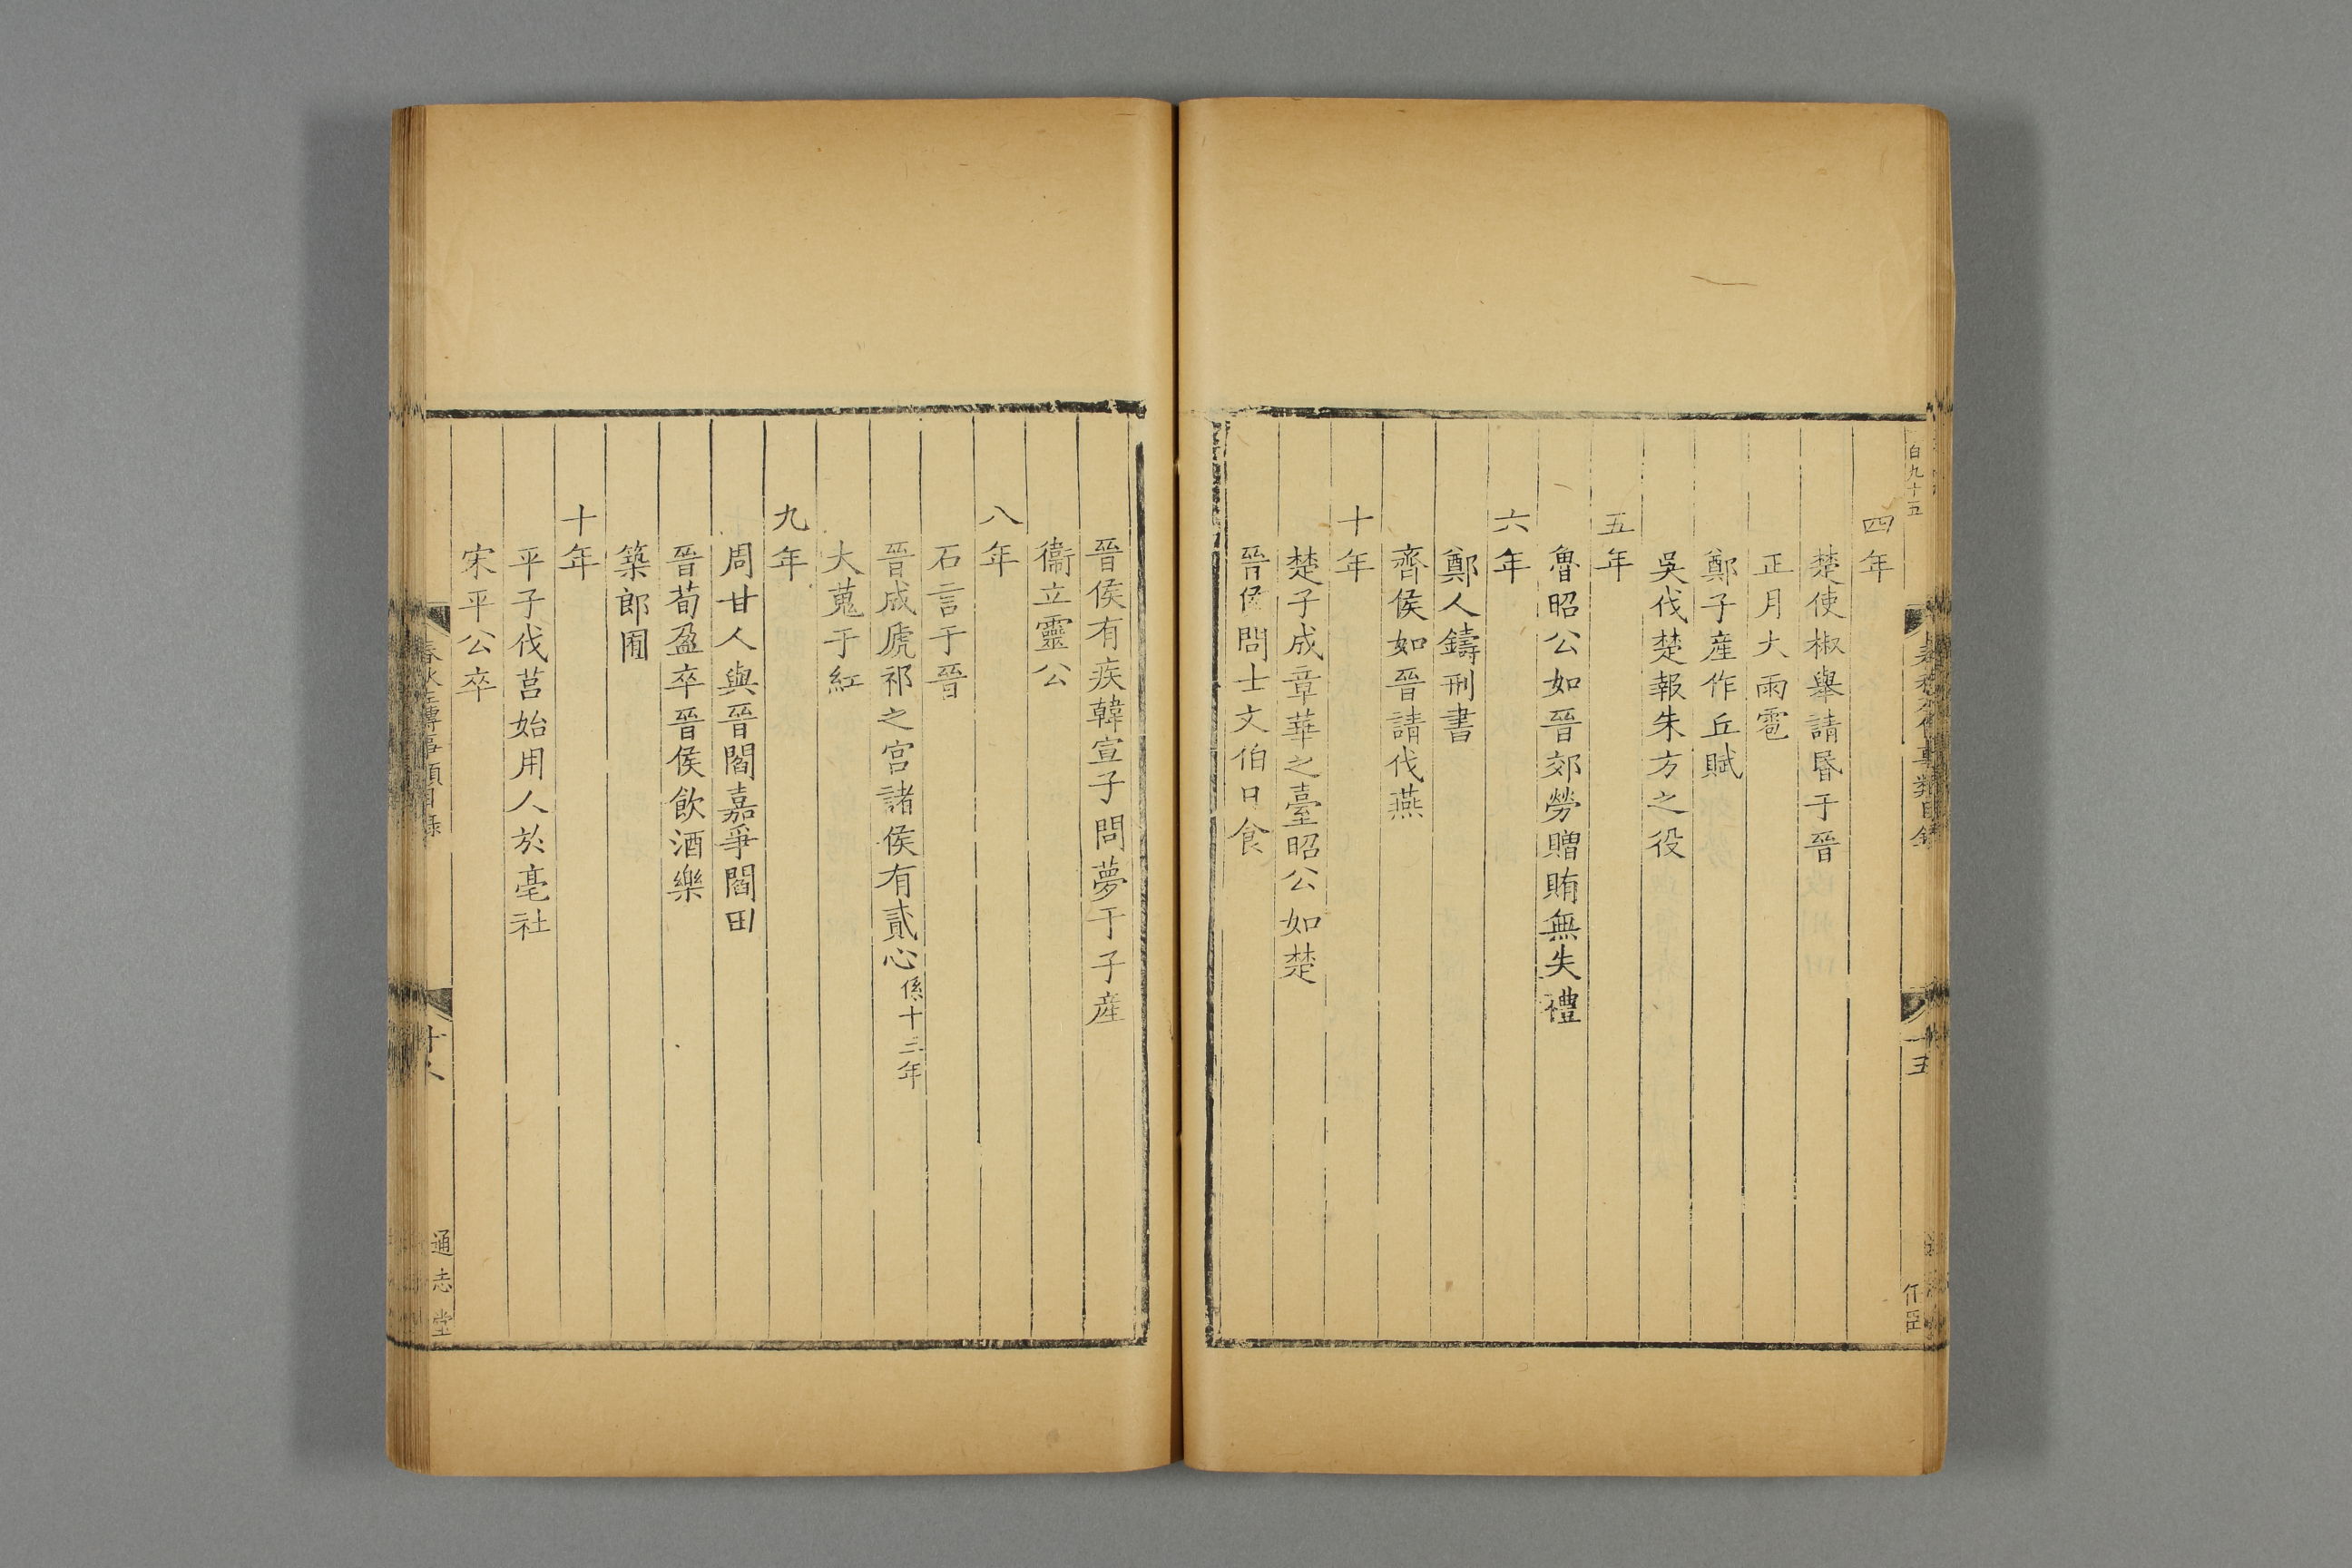 四年
楚使椒舉請昏于晉
正月大雨雹
鄭子産作丘賦
吳伐楚報朱方之役
五年
魯昭公如晉郊勞贈賄無失禮
六年
鄭人鑄刑書
齊侯如晉請伐燕
十年
楚子成章華之臺昭公如楚
晉侯問士文伯日食
晉侯有疾韓宣子問夢于子産
衞立靈公
八年
石言于晉
晉成虒祁之宫諸侯有貳心係十三年
大蒐于紅
九年
周甘人與晉閻嘉爭閻田
晉荀盈卒晉侯飲酒樂
築郎囿
十年
平子伐莒始用人於亳社
宋平公卒
春秋左傳事類目録
通志堂